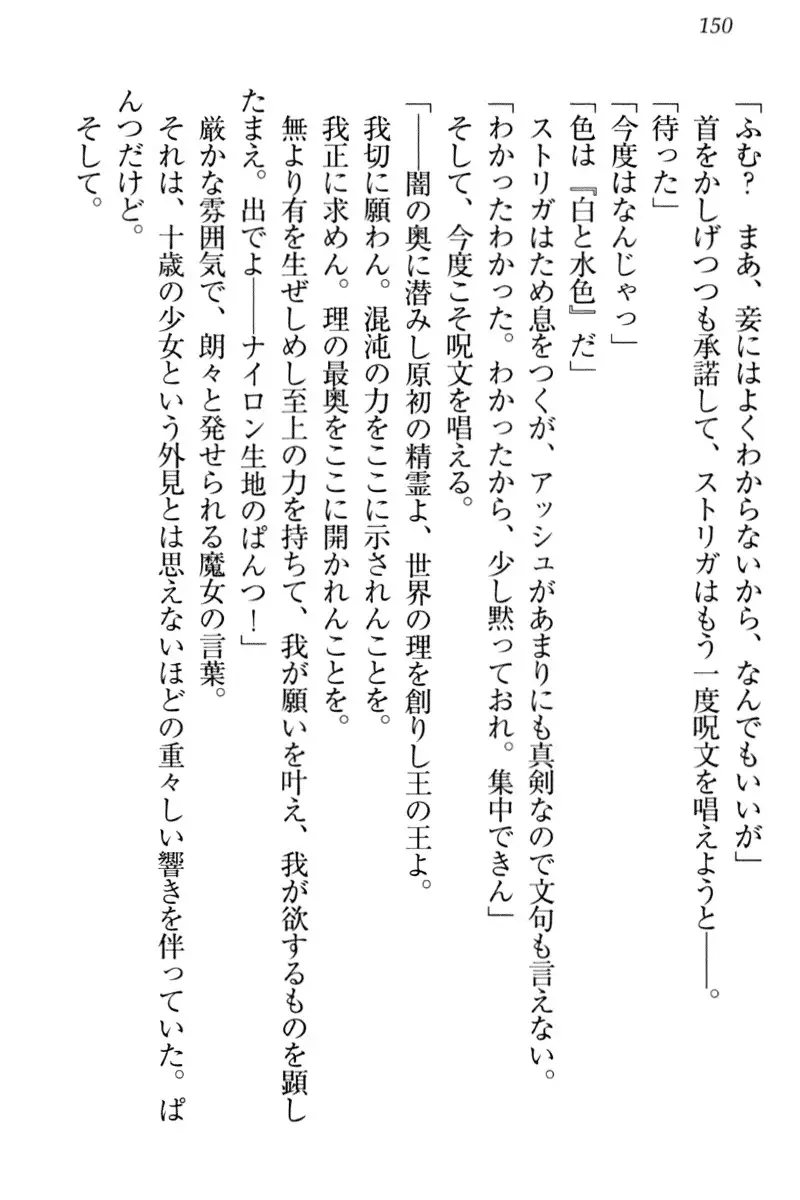 150
「ふむ？　まあ、妾にはよくわからないから、なんでもいいが」
首をかしげつつも承諾して、ストリガはもう一度呪文を唱えようと――。
「待った」
「今度はなんじゃっ」
「色は『白と水色』だ」
ストリガはため息をつくが、アッシュがあまりにも真剣なので文句も言えない。
「わかったわかった。わかったから、少し黙っておれ。集中できん」
そして、今度こそ呪文を唱える。
「――闇の奥に潜みし原初の精霊よ、世界の理を創りし王の王よ。
我切に願わん。混沌の力をここに示されんことを。
我正に求めん。理の最奥をここに開かれんことを。
無より有を生ぜしめし至上の力を持ちて、我が願いを叶え、我が欲するものを顕し
たまえ。出でよ――ナイロン生地のぱんつ！」
厳かな雰囲気で、朗々と発せられる魔女の言葉。
それは、十歳の少女という外見とは思えないほどの重々しい響きを伴っていた。ぱ
んつだけど。
そして。